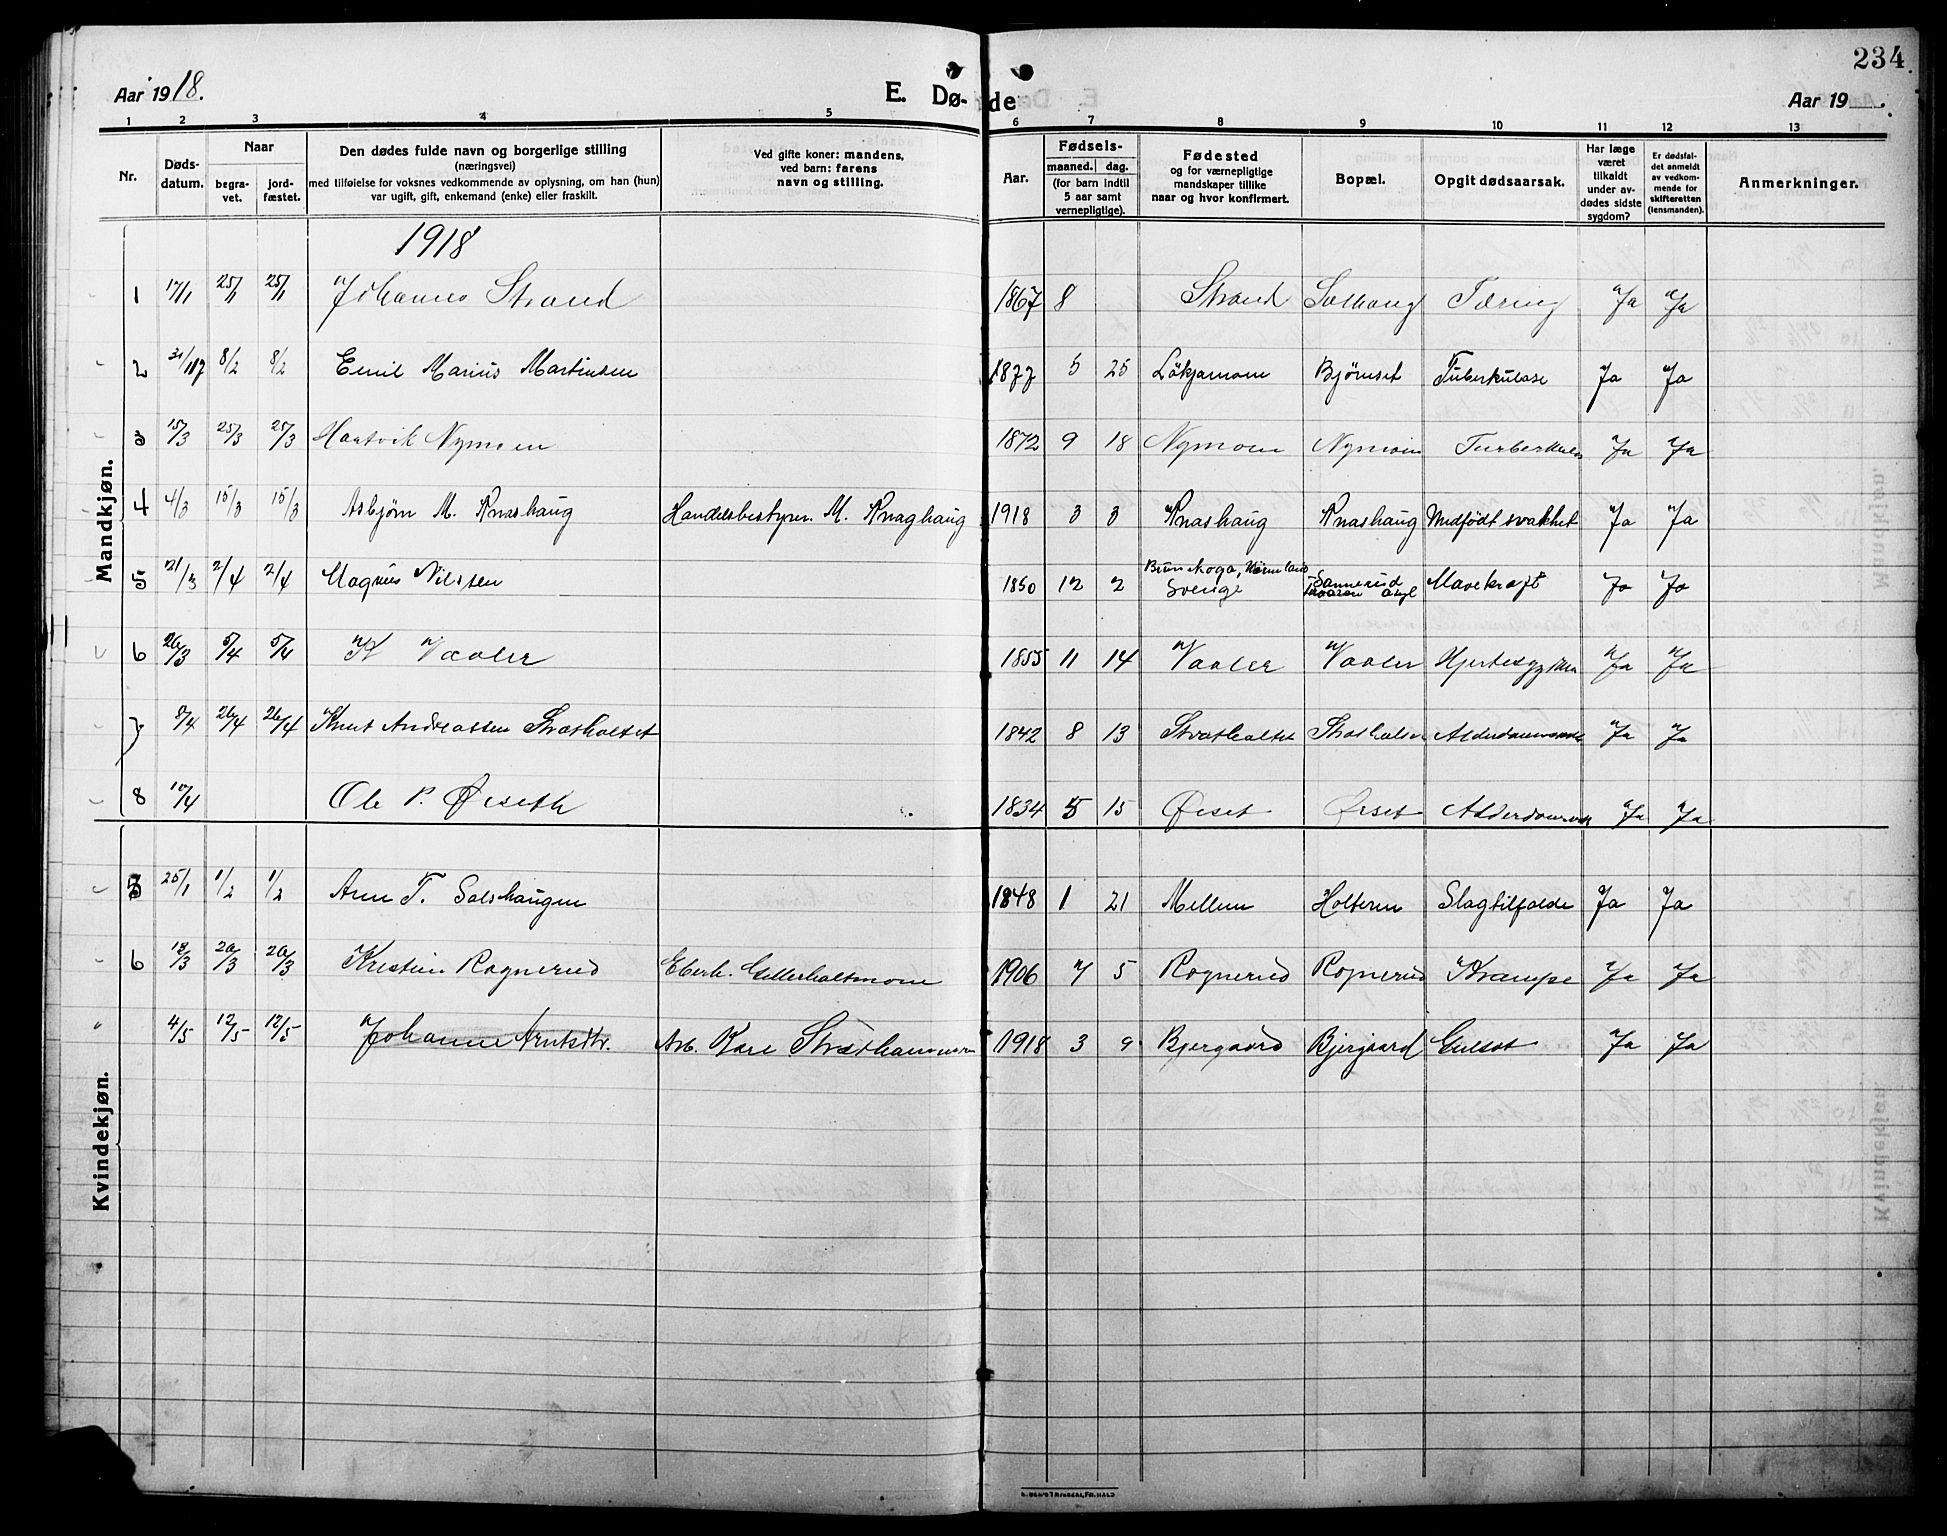 234
Aar 1918. E. Dø- de Aar 19 .
1 2 3 4 5 6 7 8 9 10 11 12 13
Nr. Døds-datum. Naar begra-vet. jord-fæstet. Den dødes fulde navn og borgerlige stilling (næringsvei) med tilføielse for voksnes vedkommende av oplysning, om han (hun) var ugift, gift, enkemand (enke) eller fraskilt. Ved gifte koner: mandens, ved barn: farens navn og stilling. Aar. Fødsels- maaned. dag. (for barn indtil 5 aar samt vernepligtige). Fødested og for værnepligtige mandskaper tillike naar og hvor konfirmert. Bopæl. Opgit dødsaarsak. Har læge været tilkaldt under av-dødes sidste sygdom? Er dødsfal-det anmeldt av vedkom-mende for skifteretten (lensmanden). Anmerkninger.
Mandkjøn.
1918
1 17/1 25/1 25/1 Johannes Strand 1867 8 Strand Solhaug Tæring Ja Ja
2 31/1 17 8/2 8/2 Emil Marius Martinsen 1877 5 25 Løkjamoen Bjørnset Tuberkulose Ja Ja
3 15/3 25/3 25/3 Hartvik Nymoen 1872 9 18 Nymoen Nymoen Turberkulos Ja Ja
4 4/3 15/3 15/3 Asbjørn M. Knashaug Handelsbestyrer M. Knashaug 1918 3 3 Knashaug Knashaug Medfödt svakhet Ja Ja
5 21/3 2/4 2/4 Magnus Nilssen 1850 12 2 Brunskoga, Värmland Sverige Sannerud Mavekræft Ja Ja
6 26/3 5/4 5/4 K Vaaler 1855 11 14 Vaaler Vaaler Ja Ja
7 8/4 26/4 26/4 Knut Andreassen Stratholtet 1842 8 13 Ja Ja
8 10/4 Ole P. Øiseth 1834 5 15 Øiset Ørset Ja Ja
Kvindekjøn.
5 25/1 1/2 1/2 Arne T. Galshaugen 1848 1 21 Mellem Holteren Slagtilfælde Ja Ja
6 13/3 20/3 20/3 Kristine Rognerud Eberh. Gitterholtmoen 1906 7 5 Rognerud Rognerud Krampe Ja Ja
" 4/5 12/5 12/5 Johanne Arntsdtr. Arb. Karl 1918 3 9 Bjergaard Bjergaard Gulsot Ja Ja